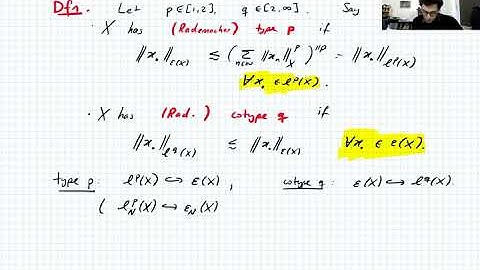 Df1. Let p∈[1,2], q∈[2,∞]. Say
· X has (Rademacher) type p if
‖x.‖_{ε(X)} ≲ (∑_{n∈ℕ} ‖x_n‖_X^p)^{1/p} = ‖x.‖_{ℓ^p(X)}
∀x. ∈ ℓ^p(X).
· X has (Rad.) cotype q if
‖x.‖_{ℓ^q(X)} ≲ ‖x.‖_{ε(X)} ∀x. ∈ ε(X).
type p: ℓ^p(X) ↪ ε(X), cotype q: ε(X) ↪ ℓ^q(X).
( ℓ_N^p(X) ↪ ε_N(X)